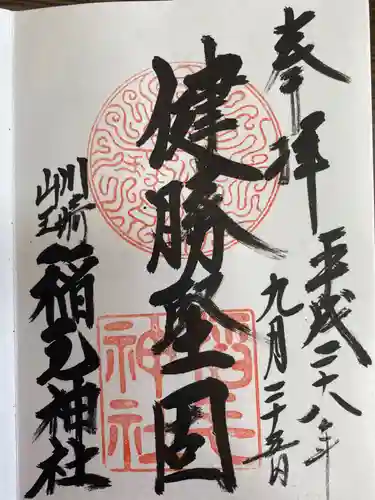 奉拝
平成二十八年
九月二十五日
健勝堅固
川崎
山王
稲毛神社
稲毛神社